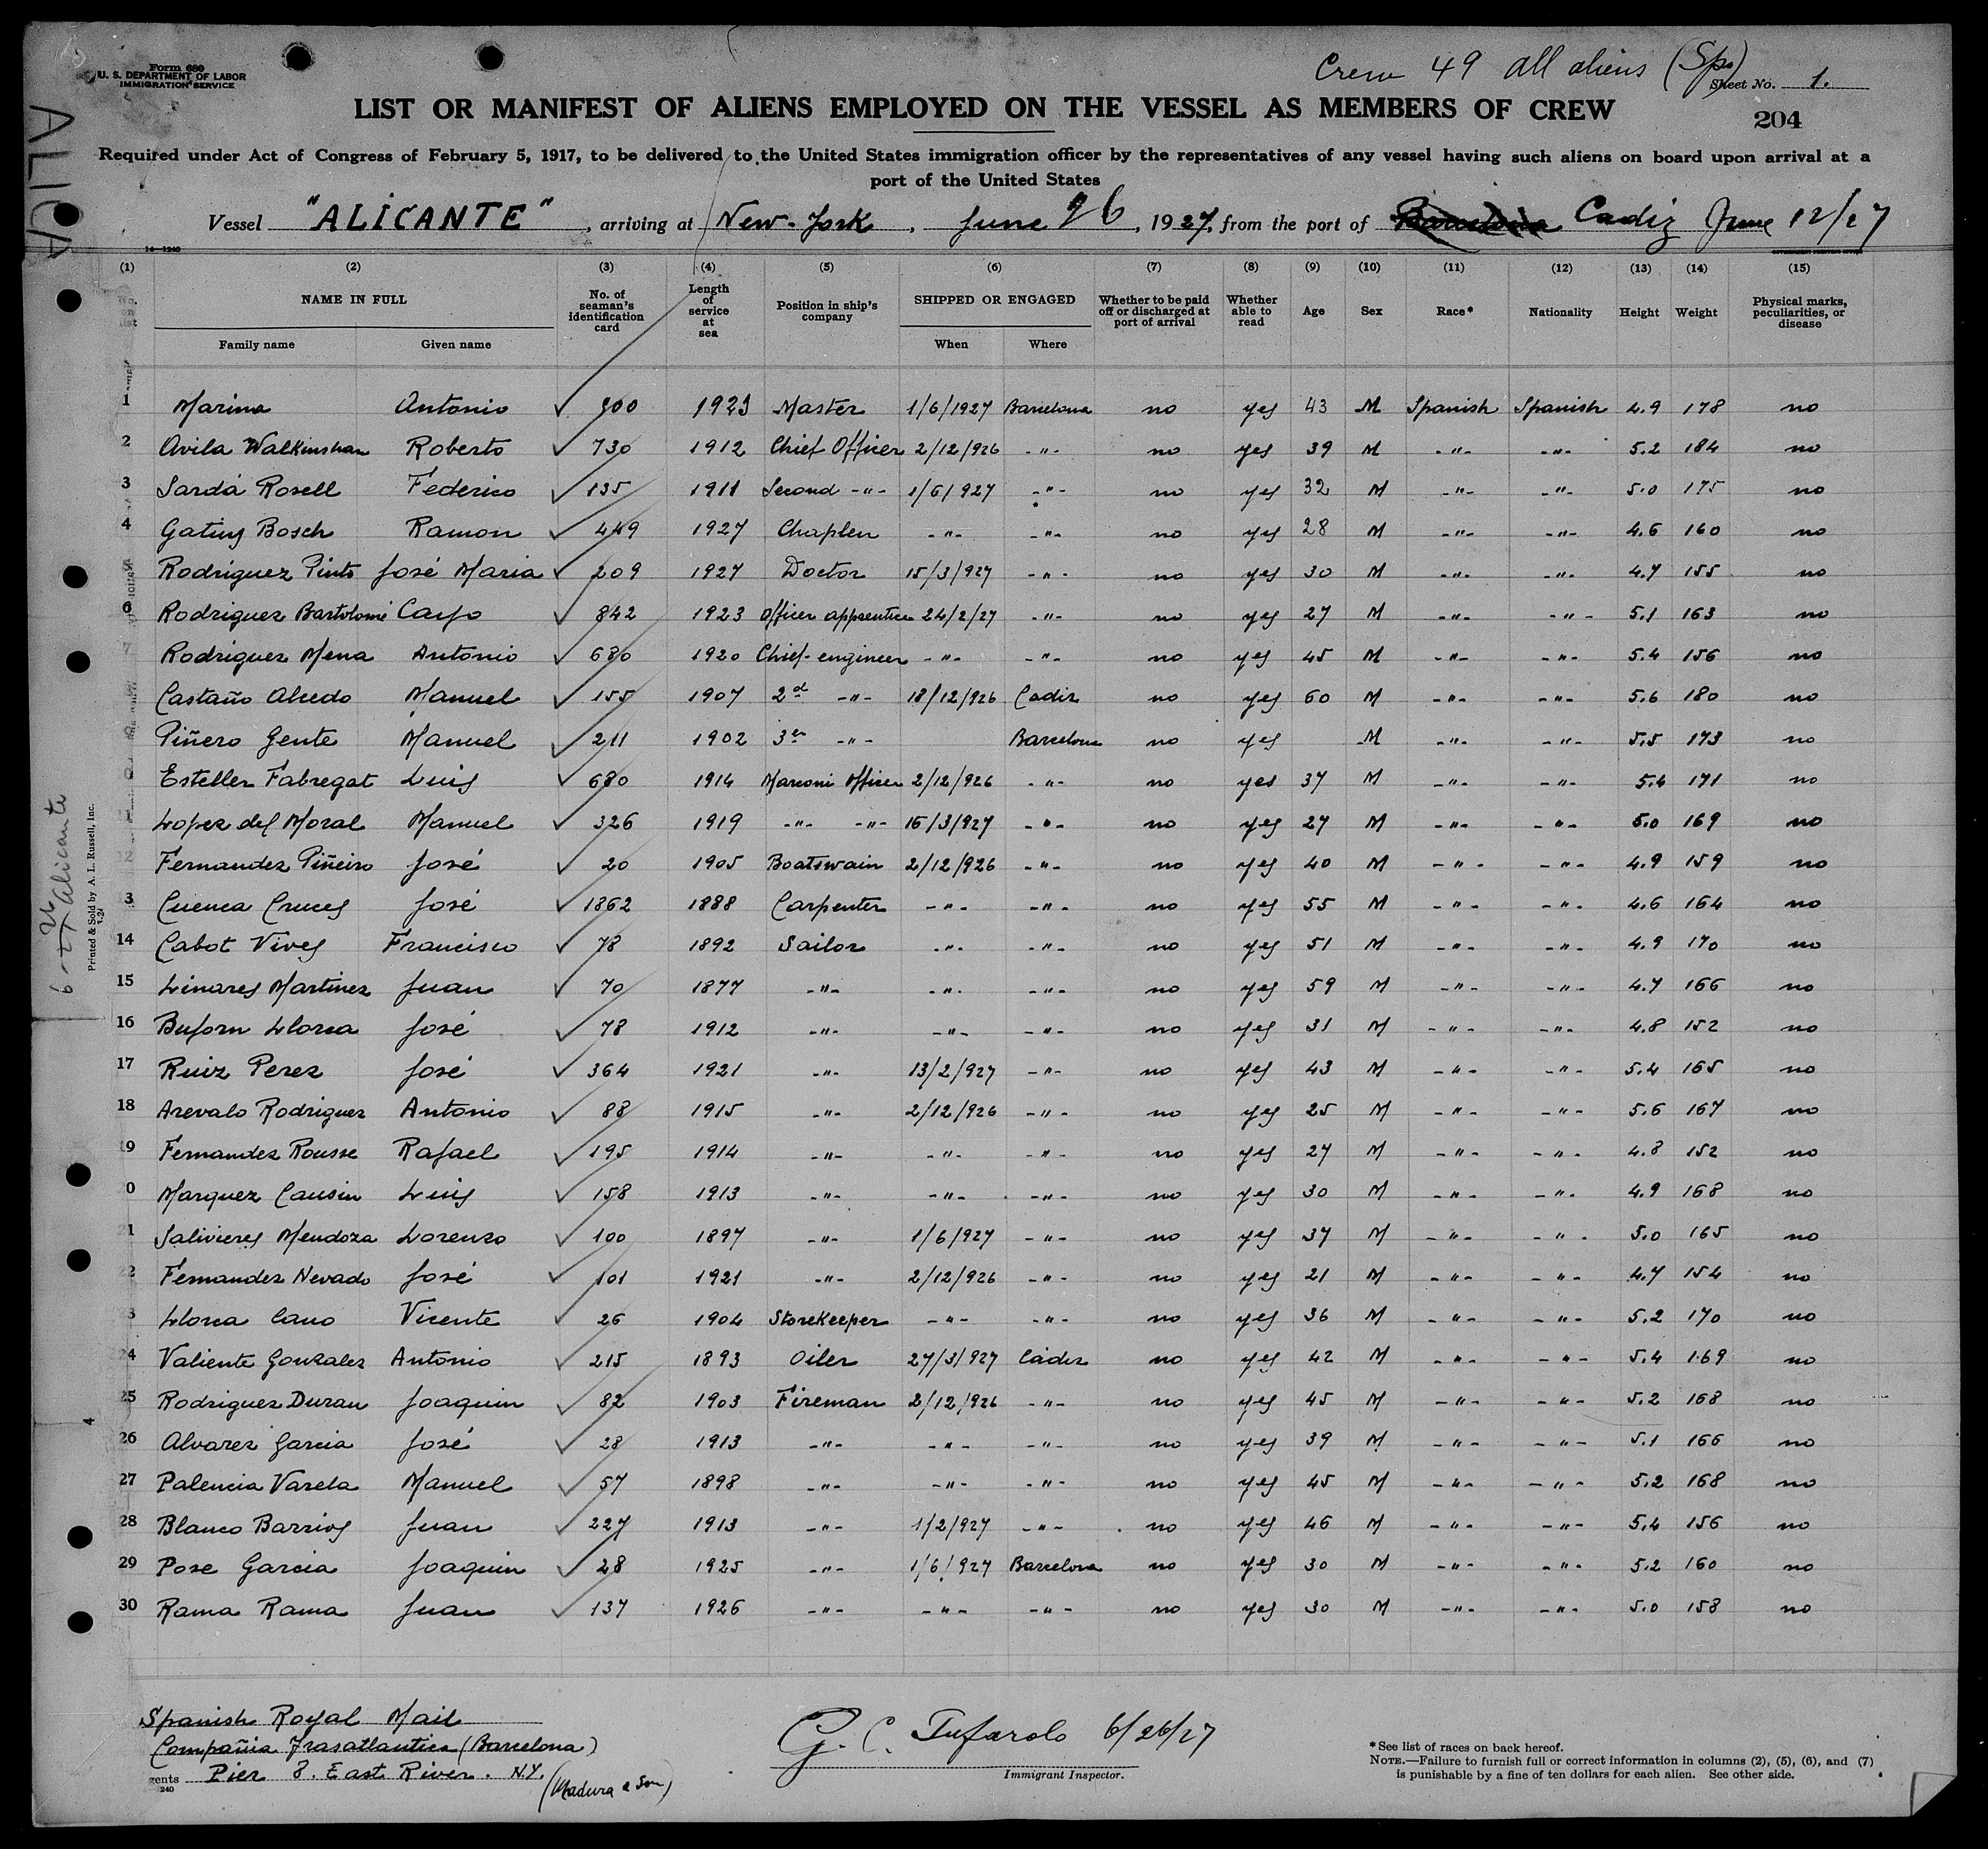 Form 680
U. S. DEPARTMENT OF LABOR
IMMIGRATION SERVICE
Crew 49 all aliens (Sp.)
Sheet No. 1.
LIST OR MANIFEST OF ALIENS EMPLOYED ON THE VESSEL AS MEMBERS OF CREW
204
Required under Act of Congress of February 5, 1917, to be delivered to the United States immigration officer by the representatives of any vessel having such aliens on board upon arrival at a
port of the United States
Vessel "ALICANTE", arriving at New-York, June 26, 1927, from the port of Barcelona Cadiz June 12/27
(1) (2) (3) (4) (5) (6) (7) (8) (9) (10) (11) (12) (13) (14) (15)
No. on list NAME IN FULL Family name Given name No. of seaman's identification card Length of service at sea Position in ship's company SHIPPED OR ENGAGED When Where Whether to be paid off or discharged at port of arrival Whether able to read Age Sex Race* Nationality Height Weight Physical marks, peculiarities, or disease
1 Marina Antonio ✓ 900 1923 Master 1/6/1927 Barcelona no yes 43 M Spanish Spanish 4.9 178 no
2 Avila Walkinshaw Roberto ✓ 730 1912 Chief Officer 2/12/926 -"- no yes 39 M -"- -"- 5.2 184 no
3 Sardá Rosell Federico ✓ 135 1911 Second -"- 1/6/927 -"- no yes 32 M -"- -"- 5.0 175 no
4 Gatius Bosch Ramon ✓ 449 1927 Chaplen -"- -"- no yes 28 M -"- -"- 4.6 160 no
5 Rodriguez Pinto José Maria ✓ 209 1927 Doctor 15/3/927 -"- no yes 30 M -"- -"- 4.7 155 no
6 Rodriguez Bartolomé Cayo ✓ 842 1923 Officer apprentice 24/2/27 -"- no yes 27 M -"- -"- 5.1 163 no
7 Rodriguez Mena Antonio ✓ 680 1920 Chief-engineer -"- -"- no yes 45 M -"- -"- 5.4 156 no
Castaño Alcedo Manuel ✓ 155 1907 2d -"- 18/12/926 Cadiz no yes 60 M -"- -"- 5.6 180 no
9 Piñero Gente Manuel ✓ 211 1902 3er -"- Barcelona no yes M -"- -"- 5.5 173 no
0 Esteller Fabregat Luis ✓ 680 1914 Marconi Officer 2/12/926 -"- no yes 37 M -"- -"- 5.4 171 no
1 Lopez del Moral Manuel ✓ 326 1919 -"- -"- 15/3/927 -"- no yes 27 M -"- -"- 5.0 169 no
12 Fernandez Piñeiro José ✓ 20 1905 Boatswain 2/12/926 -"- no yes 40 M -"- -"- 4.9 159 no
3 Cuenca Cruces José ✓ 1362 1888 Carpenter -"- -"- no yes 55 M -"- -"- 4.6 164 no
14 Cabot Vives Francisco ✓ 78 1892 Sailor -"- -"- no yes 51 M -"- -"- 4.9 170 no
15 Linares Martinez Juan ✓ 70 1877 -"- -"- -"- no yes 59 M -"- -"- 4.7 166 no
16 Buforn Llorca José ✓ 78 1912 -"- -"- -"- no yes 31 M -"- -"- 4.8 152 no
17 Ruiz Perez José ✓ 364 1921 -"- 13/2/927 -"- no yes 43 M -"- -"- 5.4 165 no
18 Arevalo Rodriguez Antonio ✓ 88 1915 -"- 2/12/926 -"- no yes 25 M -"- -"- 5.6 167 no
19 Fernandez Rousse Rafael ✓ 195 1914 -"- -"- -"- no yes 27 M -"- -"- 4.8 152 no
0 Marquez Causin Luis ✓ 158 1913 -"- -"- -"- no yes 30 M -"- -"- 4.9 168 no
21 Salivieres Mendoza Lorenzo ✓ 100 1897 -"- 1/6/927 -"- no yes 37 M -"- -"- 5.0 165 no
22 Fernandez Nevado José ✓ 101 1921 -"- 2/12/926 -"- no yes 21 M -"- -"- 4.7 154 no
23 Llorca Cano Vicente ✓ 26 1904 Storekeeper -"- -"- no yes 36 M -"- -"- 5.2 170 no
24 Valiente Gonzalez Antonio ✓ 215 1893 Oiler 27/3/927 Cádiz no yes 42 M -"- -"- 5.4 169 no
25 Rodriguez Duran Joaquin ✓ 82 1903 Fireman 2/12/926 -"- no yes 45 M -"- -"- 5.2 168 no
26 Alvarez Garcia José ✓ 28 1913 -"- -"- -"- no yes 39 M -"- -"- 5.1 166 no
27 Palencia Varela Manuel ✓ 57 1898 -"- -"- -"- no yes 45 M -"- -"- 5.2 168 no
28 Blanco Barrios Juan ✓ 227 1913 -"- 1/2/927 -"- no yes 46 M -"- -"- 5.4 156 no
29 Pose Garcia Joaquin ✓ 28 1925 -"- 1/6/927 Barcelona no yes 30 M -"- -"- 5.2 160 no
30 Rama Rama Juan ✓ 137 1926 -"- -"- -"- no yes 30 M -"- -"- 5.0 158 no
Spanish Royal Mail
Compañia Trasatlantica (Barcelona)
gents Pier 8. East River. N.Y.
(Madura & Son)
G. C. Tufarolo 6/26/27
Immigrant Inspector.
*See list of races on back hereof.
NOTE.—Failure to furnish full or correct information in columns (2), (5), (6), and (7)
is punishable by a fine of ten dollars for each alien. See other side.
ALICA
Alicante
Printed & Sold by A. L. Russell, Inc.
4